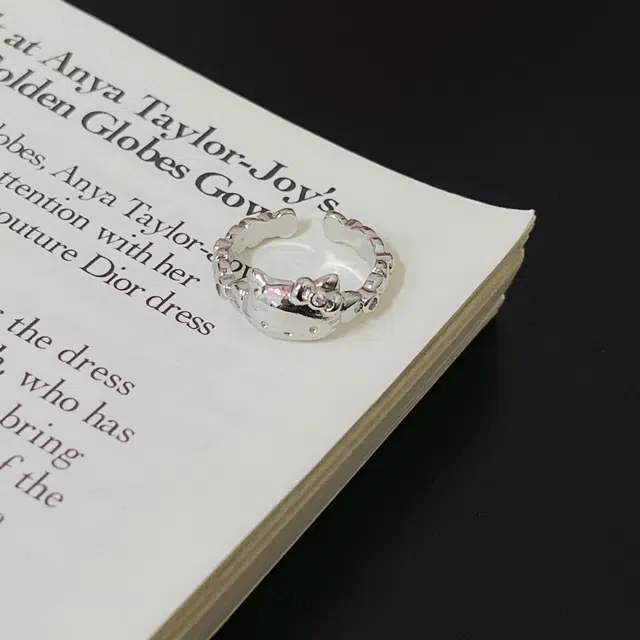 at Anya Taylor-Joy's
Golden Globes Gow
lobes, Anya Taylor-
ttention with her
couture Dior dress
the dress
who has
bring
f the